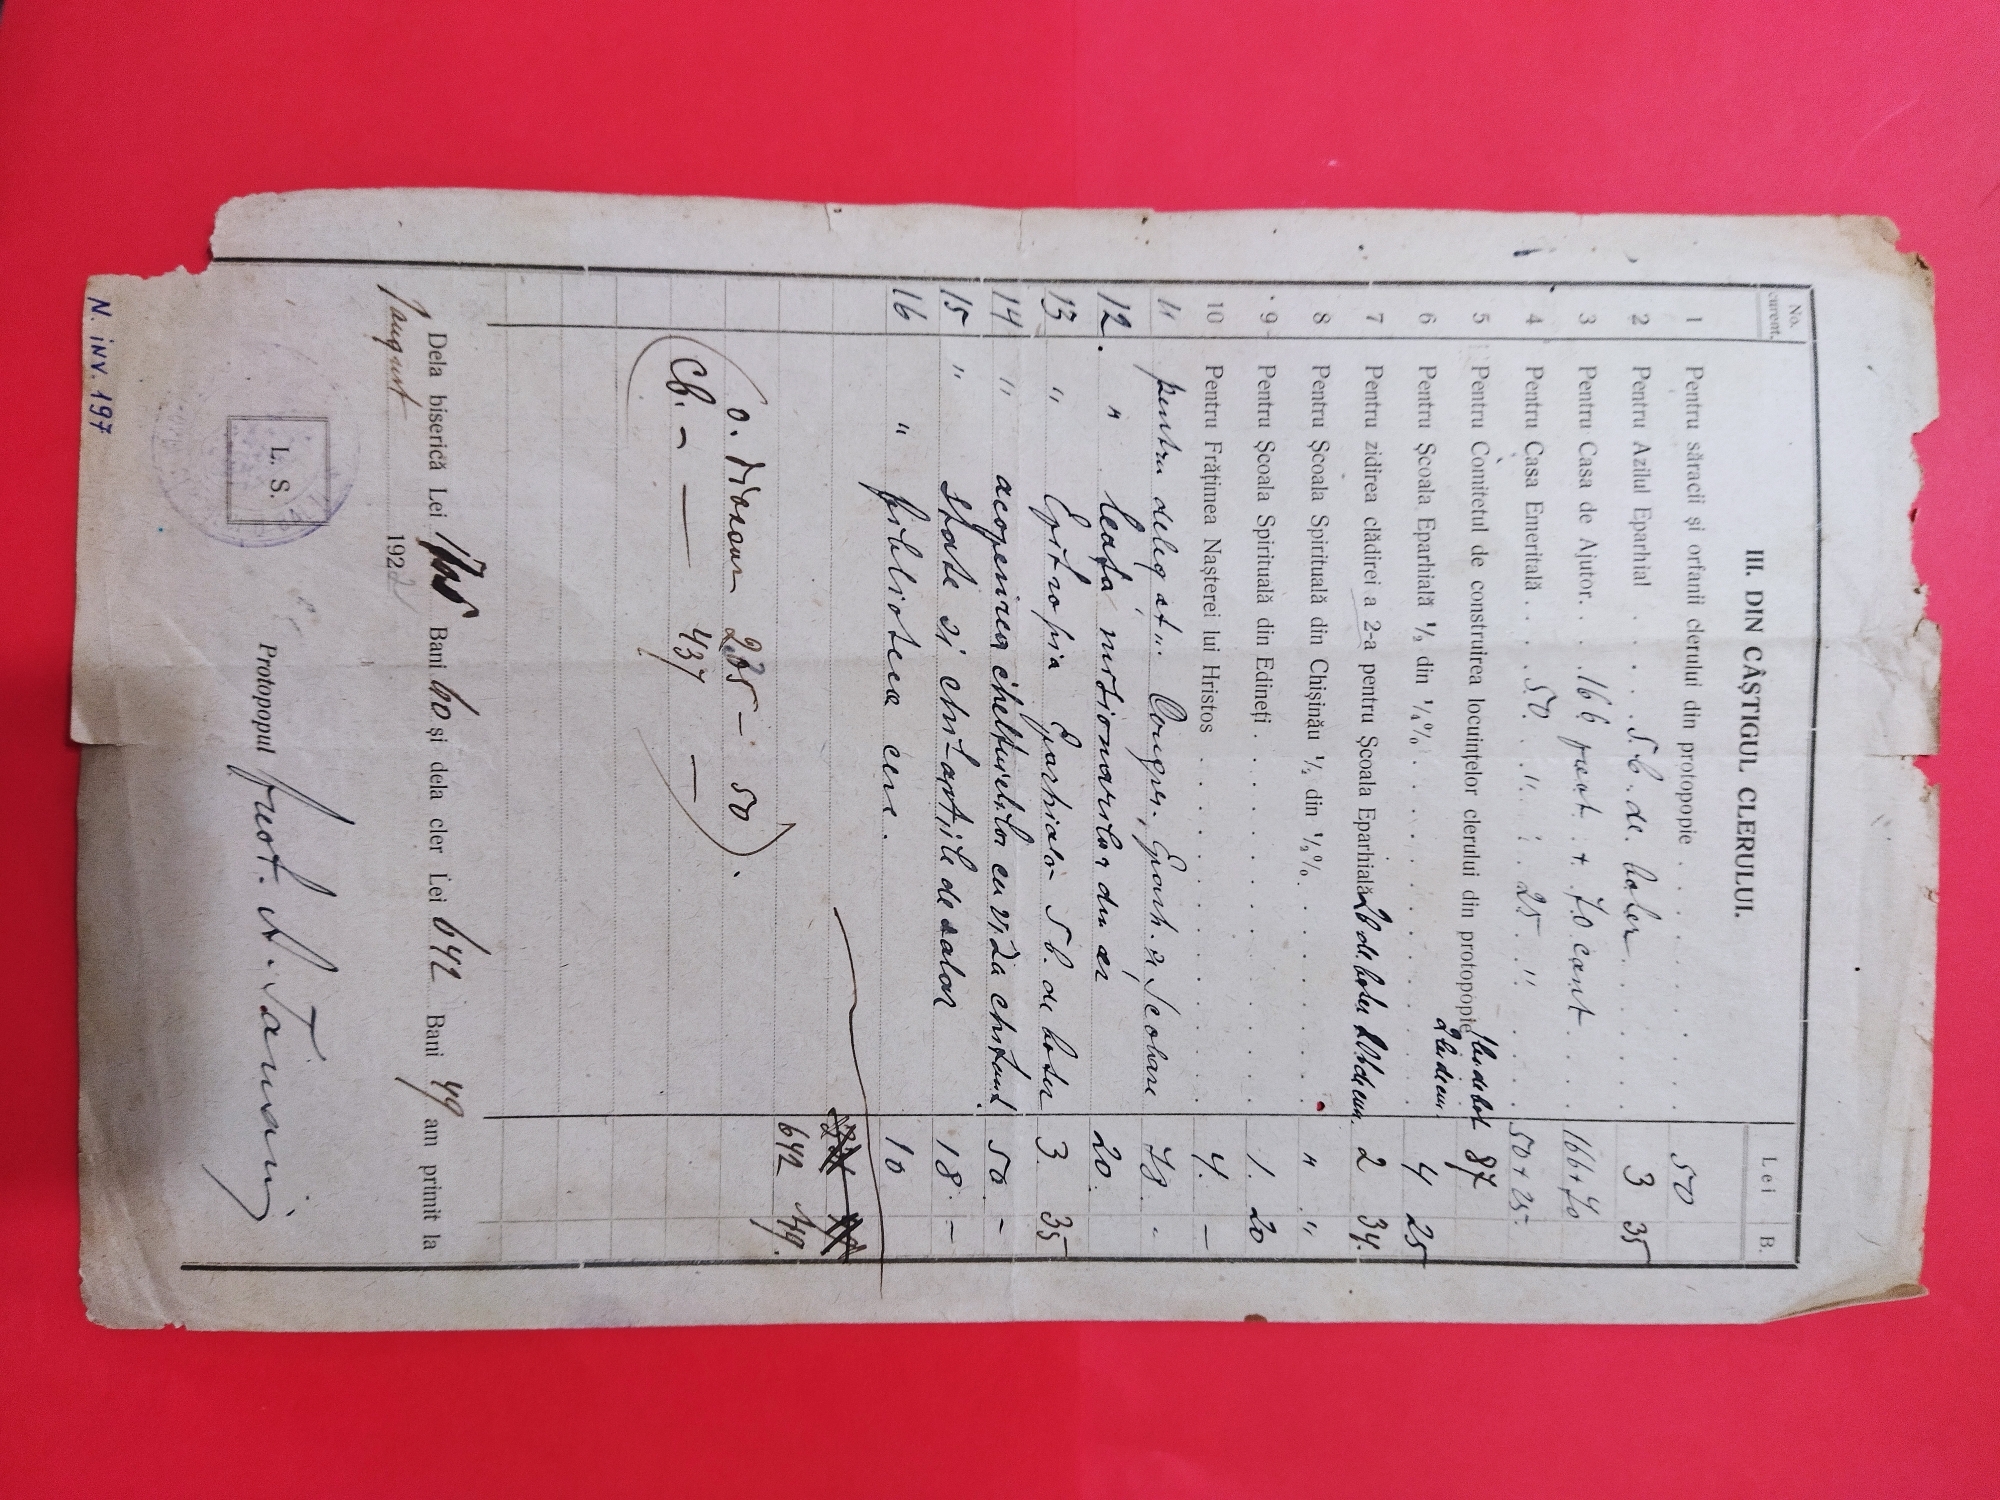 III. DIN CÂȘTIGUL CLERULUI.
No. curent. Lei B.
1 Pentru săracii și orfanii clerului din protopopie 50
2 Pentru Azilul Eparhial 5 b. de boler 3 35
3 Pentru Casa de Ajutor. 166 preot + 70 cant 166+70
4 Pentru Casa Emeritală 50 " 25 " 50+25-
5 Pentru Comitetul de construirea locuințelor clerului din protopopie 87
6 Pentru Școala Eparhială ½ din ¼% 4 25
7 Pentru zidirea clădirei a 2-a pentru Școala Eparhială 2 34.
8 Pentru Școala Spirituală din Chișinău ½ din ½%. " "
9 Pentru Școala Spirituală din Edineți 1. 20
10 Pentru Frăținea Nașterei lui Hristos 4. —
11 pentru delegații Congr. Eparh. și Școlare 78 -
12. " leafa misionarilor 20.
13 " Epitropia Eparhială 5 b. de boler 3. 35
14 " acoperirea cheltuielilor cu viza 50 -
15 " ștate și chitanțile de salar 18. -
16 " biblioteca cerc. 10
642 49.
235 - 50
437 —
Dela biserică Lei Bani 60 și dela cler Lei 642 Bani 49 am primit la
1 august 1922
L. S.
Protopopul
N. inv. 197